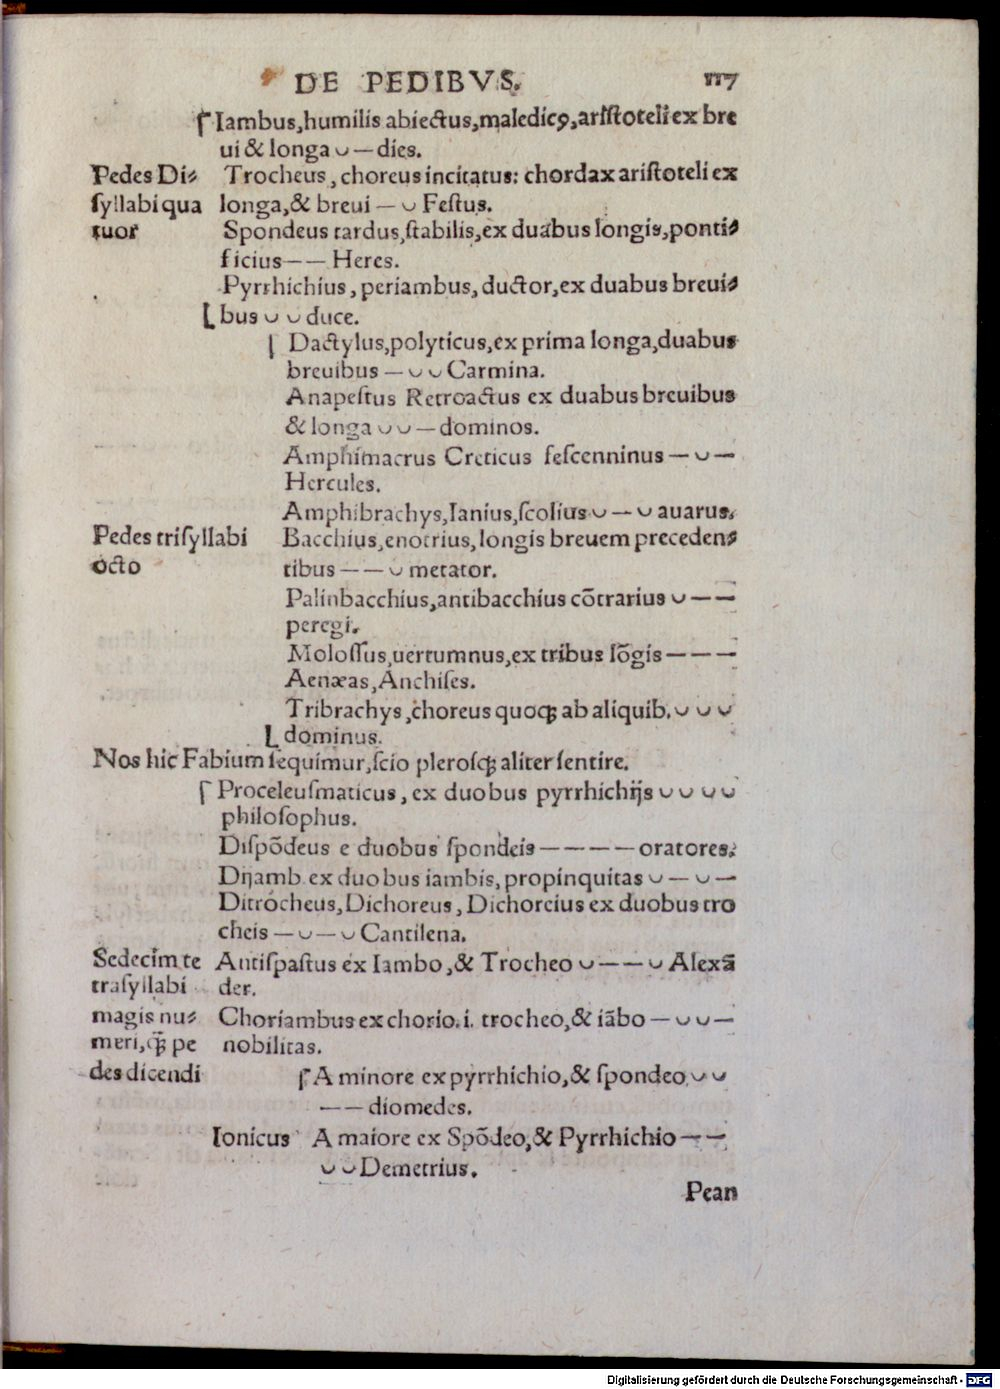 DE PEDIBVS. 117
Iambus,humilis abiectus,maledicꝰ,ariſtoteli ex bre
ui & longa ᴗ — dies.
Pedes Di⸗ Trocheus, choreus incitatus: chordax ariſtoteli ex
ſyllabi qua longa,& breui — ᴗ Feſtus.
tuor Spondeus tardus,ſtabilis,ex duabus longis,ponti⸗
ficius — — Heres.
Pyrrhichius, periambus, ductor,ex duabus breui⸗
bus ᴗ ᴗ duce.
Dactylus,polyticus,ex prima longa,duabus
breuibus — ᴗ ᴗ Carmina.
Anapeſtus Retroactus ex duabus breuibus
& longa ᴗ ᴗ — dominos.
Amphimacrus Creticus feſcenninus — ᴗ —
Hercules.
Amphibrachys,Ianius,ſcolius ᴗ — ᴗ auarus.
Pedes triſyllabi Bacchius,enotrius,longis breuem preceden⸗
octo tibus — — ᴗ metator.
Palinbacchius,antibacchius cōtrarius ᴗ — —
peregi.
Moloſſus,uertumnus,ex tribus lōgis — — —
Aenæas,Anchiſes.
Tribrachys,choreus quoqꝫ ab aliquib. ᴗ ᴗ ᴗ
dominus.
Nos hic Fabium ſequimur,ſcio pleroſqꝫ aliter ſentire.
Proceleuſmaticus, ex duobus pyrrhichijs ᴗ ᴗ ᴗ ᴗ
philoſophus.
Diſpōdeus e duobus ſpondeis — — — — oratores.
Dijamb.ex duobus iambis,propinquitas ᴗ — ᴗ —
Ditrocheus,Dichoreus, Dichoreius ex duobus tro
cheis — ᴗ — ᴗ Cantilena.
Sedecim te Antiſpaſtus ex Iambo,& Trocheo ᴗ — — ᴗ Alexā
traſyllabi der.
magis nu⸗ Choriambus ex chorio.i. trocheo,& iābo — ᴗ ᴗ —
meri,q̄ꝫ pe nobilitas.
des dicendi A minore ex pyrrhichio,& ſpondeo ᴗ ᴗ
— — diomedes.
Ionicus A maiore ex Spōdeo,& Pyrrhichio — —
ᴗ ᴗ Demetrius.
Pean
Digitalisierung gefördert durch die Deutsche Forschungsgemeinschaft - DFG